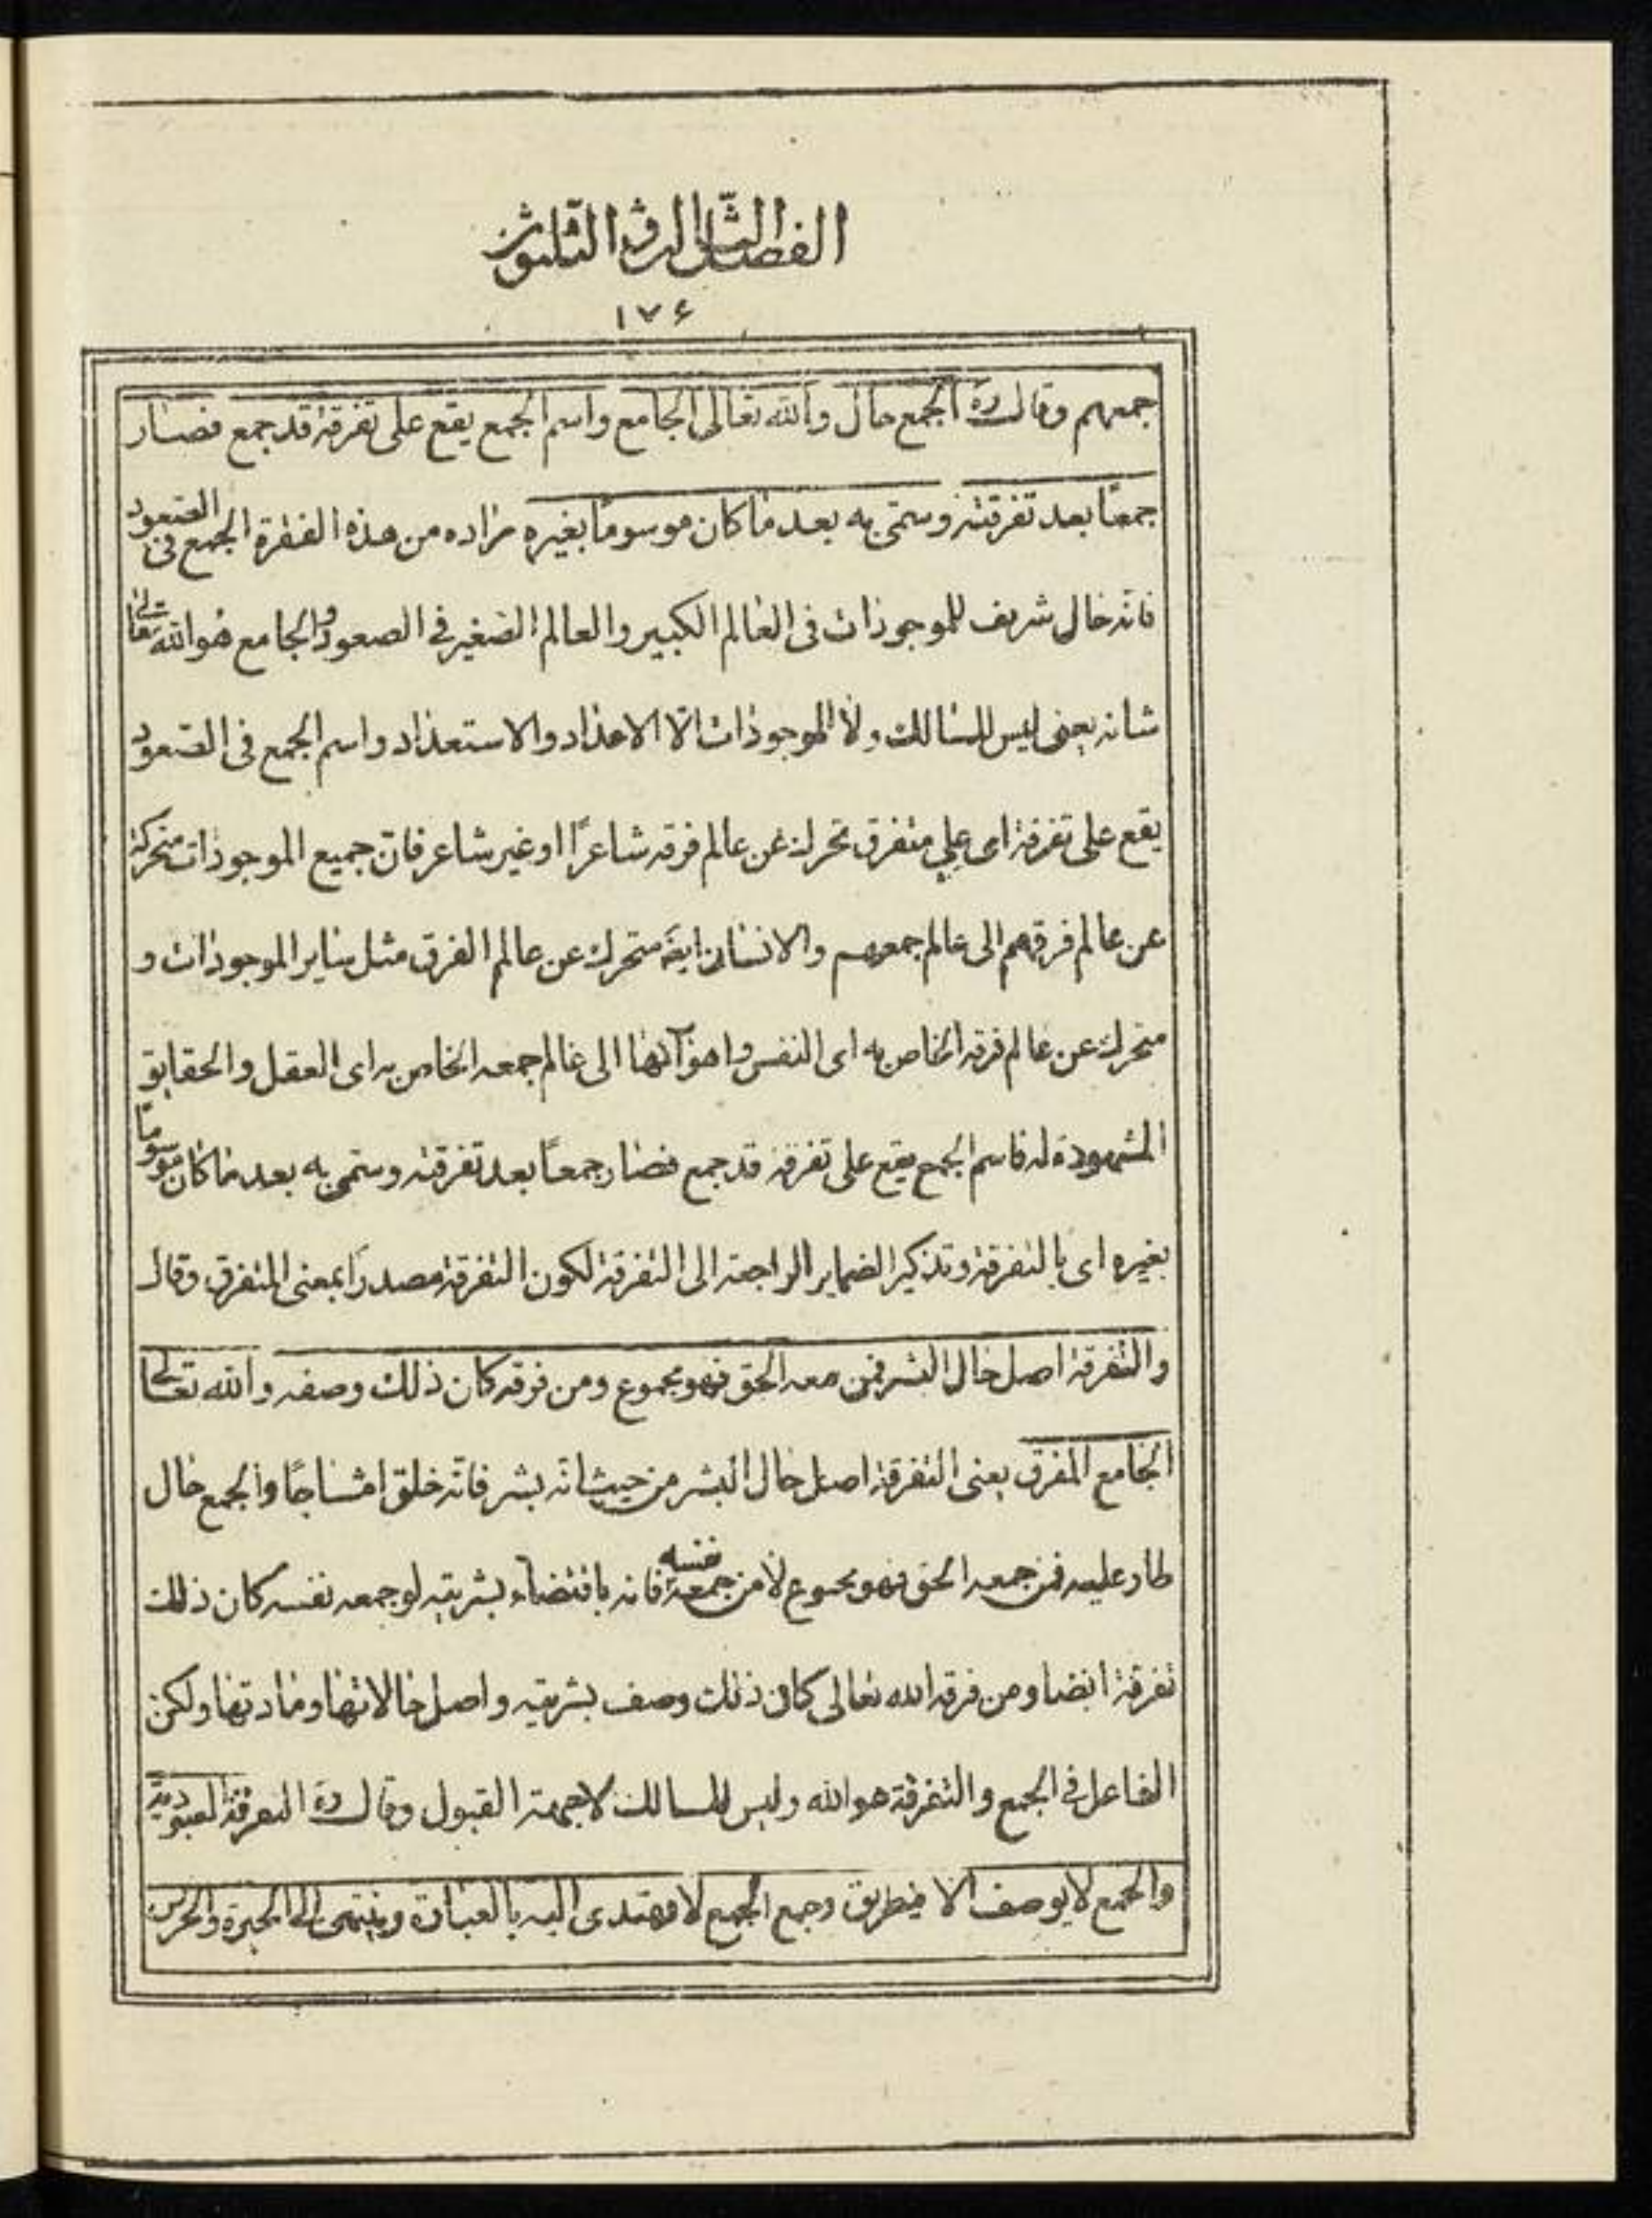 الفصل الثالث والثلثون
١٧۶
جمعهم وقال ره الجمع حال والله تعالى الجامع واسم الجمع يقع على تفرقة قد جمع فصار
جمعًا بعد تفرقته وسمّى به بعد ما كان موسومًا بغيره مراده من هذه الفقرة الجمع فى الصعود
فانّه حال شريف للموجودات فى العالم الكبير والعالم الصغير فى الصعود والجامع هو الله تعالى
شانه يعنى ليس للسالك ولا للموجودات الّا الاعداد والاستعداد واسم الجمع فى الصعود
يقع على تفرقة اى على متفرق تحرك عن عالم فرقه شاعرًا او غير شاعر فانّ جميع الموجودات متحركة
عن عالم فرقهم الى عالم جمعهم والانسان ايضَ متحرك عن عالم الفرق مثل ساير الموجودات و
متحرك عن عالم فرقه الخاص به اى النفس واهوآئها الى عالم جمعه الخاص به اى العقل والحقايق
المشهودة له فاسم الجمع يقع على تفرقة قد جمع فصار جمعًا بعد تفرقته وسمّى به بعد ما كان موسومًا
بغيره اى بالتفرقة وتذكير الضماير الراجعة الى التفرقة لكون التفرقة مصدرًا بمعنى المتفرق وقال
والتفرقة اصل حال البشر فمن جمعه الحق فهو مجموع ومن فرقه كان ذلك وصفه والله تعالى
الجامع المفرق يعنى التفرقة اصل حال البشر من حيث انّه بشر فانّه خلق امشاجًا والجمع حال
طار عليه فمن جمعه الحق فهو مجموع لا من جمعه نفسه فانه باقتضاء بشريته لو جمعه نفسه كان ذلك
تفرقة ايضا ومن فرقه الله تعالى كان ذلك وصف بشريته واصل حالاتها ومادتها ولكن
الفاعل فى الجمع والتفرقة هو الله وليس للسالك الا جهة القبول وقال ره التفرقة لعبودية
والجمع لا يوصف الا بطريق وجمع الجمع لا يهتدى اليه بالعبارة وينتهى الى الحيرة والخرس